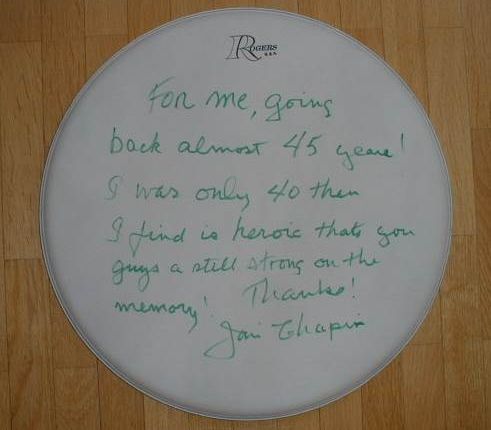 ROGERS
U.S.A.
For me, going
back almost 45 years!
I was only 40 then
I find is heroic thats you
guys a still strong on the
memory! Thanks!
Jim Chapin